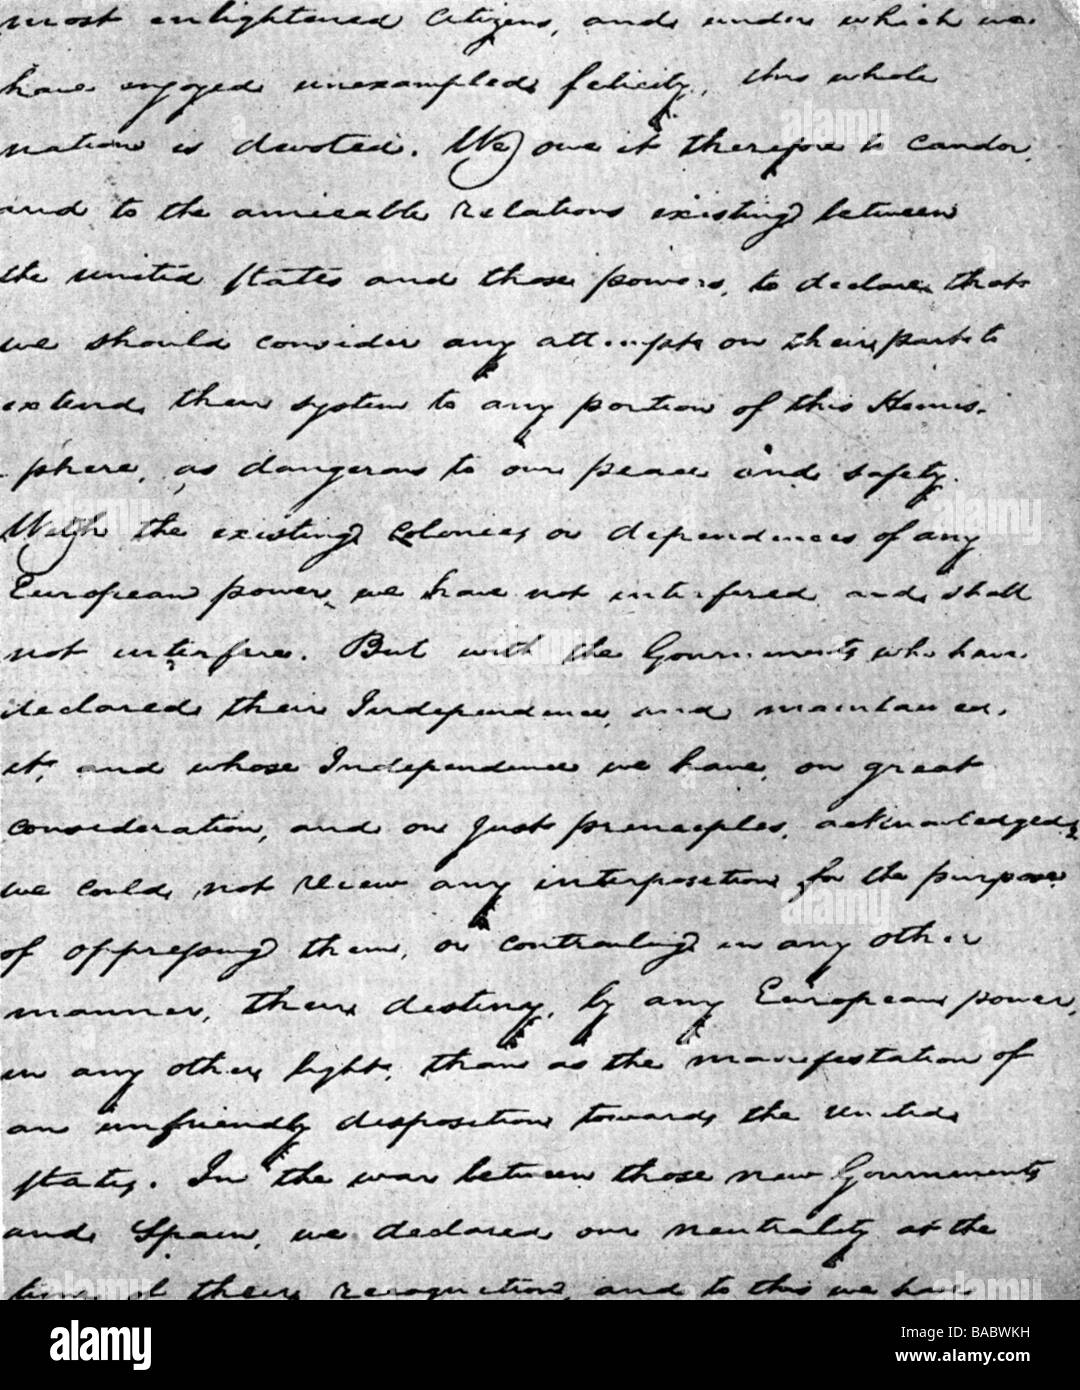 most enlightened Citizens, and under which we
have enjoyed unexampled felicity, this whole
nation is devoted. We owe it therefore to candor,
and to the amicable Relations existing between
the united States and those powers, to declare that
we should consider any attempts on their part to
extend their system to any portion of this Hemis-
phere, as dangerous to our peace and safety.
With the existing Colonies or dependencies of any
European power, we have not interfered and shall
not interfere. But with the Governments who have
declared their Independence, and maintained
it, and whose Independence we have, on great
consideration, and on just principles, acknowledged,
we could not view any interposition for the purpose
of oppressing them, or controuling in any other
manner, their destiny, by any European power,
in any other light, than as the manifestation of
an unfriendly disposition towards the United
States. In the war between those new Governments
and Spain, we declared our neutrality at the
time of their recognition, and to this we have
alamy
Image ID: BABWKH
www.alamy.com